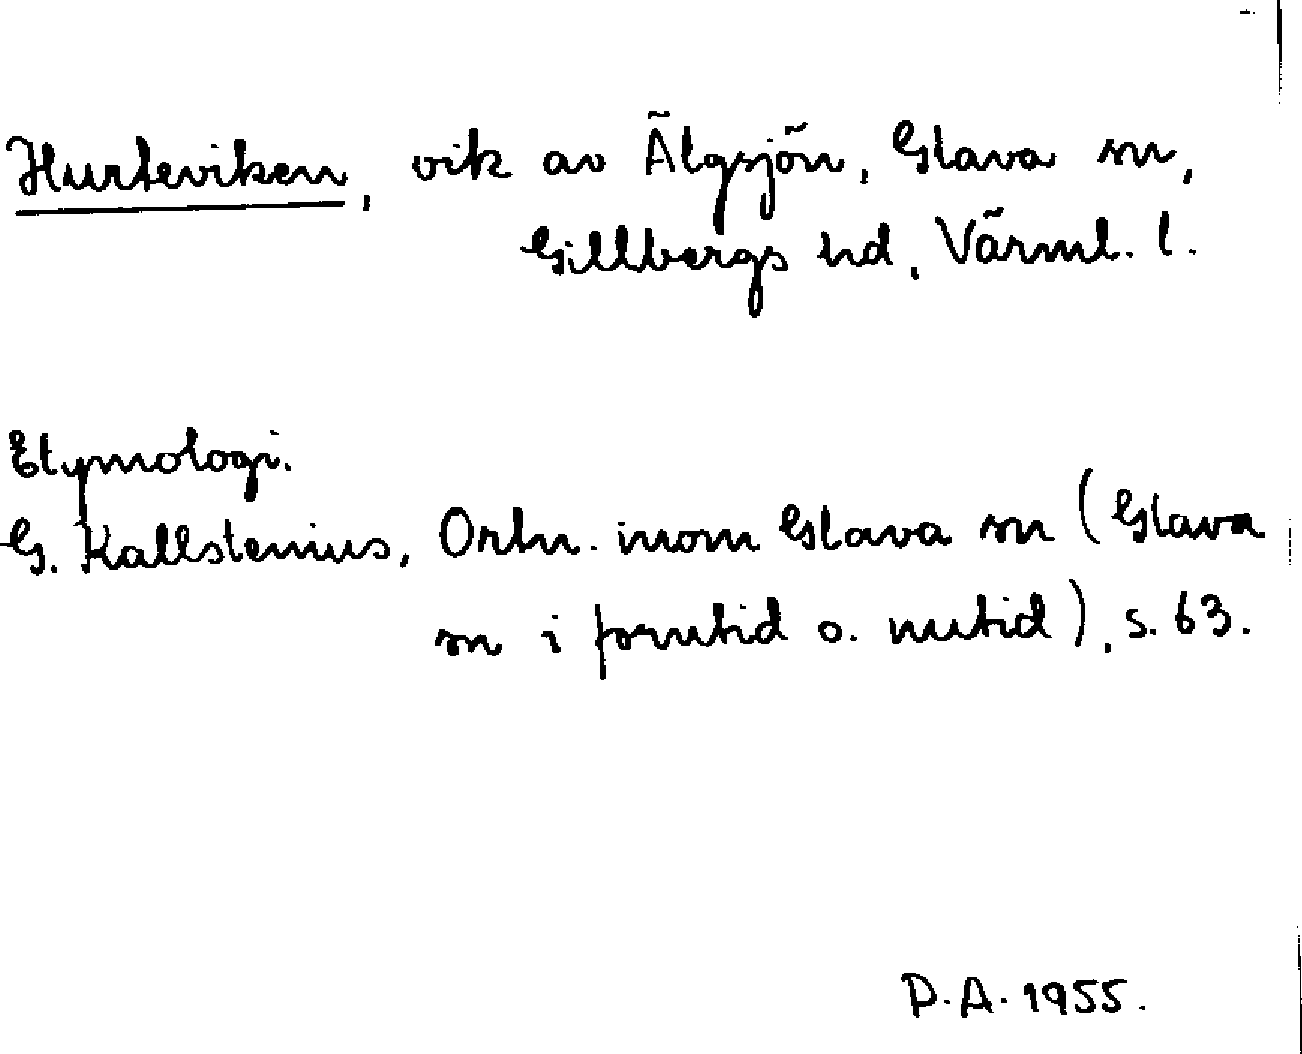 Hurteviken, vik av Älgsjön, Glava sn,
Gillbergs hd, Värml. l.
Etymologi.
G. Kallstenius, Ortn. inom Glava sn (Glava
sn i forntid o. nutid), s. 63.
D.A. 1955.